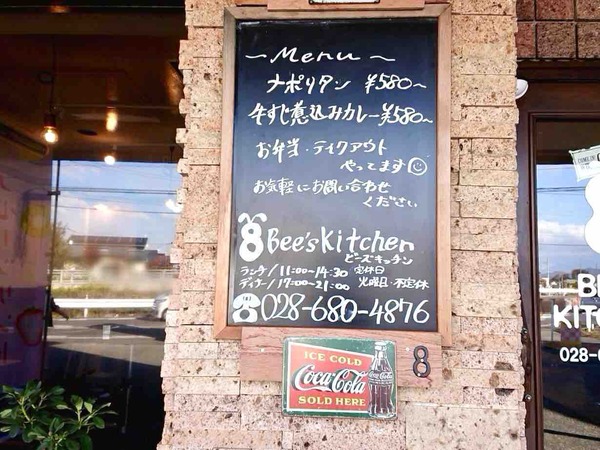 ~ Menu ~
ナポリタン ¥580~
牛すじ煮込みカレー ¥580~
お弁当・テイクアウト
やってます
お気軽にお問い合わせ
ください
Bee's Kitchen
ビーズキッチン
ランチ/11:00~14:30 定休日
ディナー/17:00~21:00 火曜日・不定休
☎028-680-4876
8
ICE COLD
Coca-Cola
SOLD HERE
BE
KITC
028-6